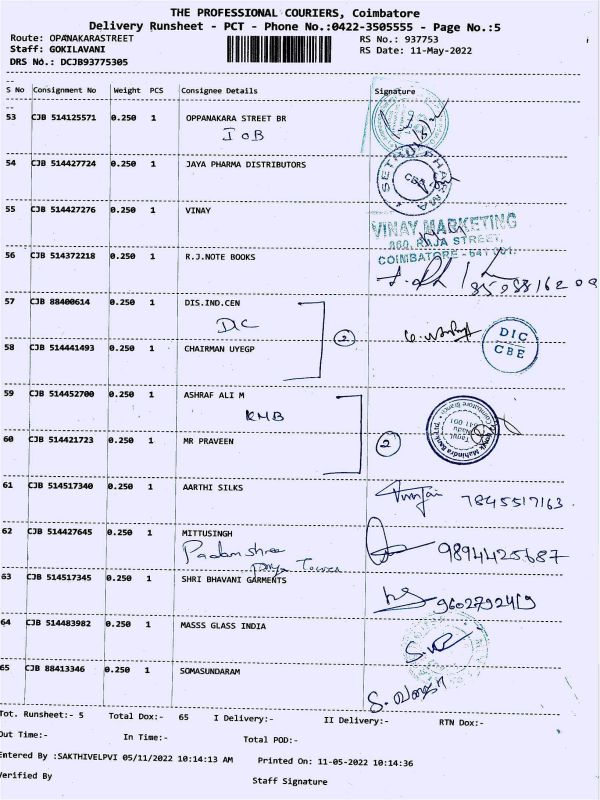 THE PROFESSIONAL COURIERS, Coimbatore
Delivery Runsheet - PCT - Phone No.:0422-3505555 - Page No.:5
Route: OPANAKARASTREET RS No.: 937753
Staff: GOKILAVANI RS Date: 11-May-2022
DRS No.: DCJB93775305
S No Consignment No Weight PCS Consignee Details Signature
53 CJB 514125571 0.250 1 OPPANAKARA STREET BR
IOB
54 CJB 514427724 0.250 1 JAYA PHARMA DISTRIBUTORS
SETHU PHARMA
CBE
55 CJB 514427276 0.250 1 VINAY
VINAY MARKETING
RAJA STREET,
COIMBATORE - 641 001.
56 CJB 514372218 0.250 1 R.J.NOTE BOOKS
57 CJB 88400614 0.250 1 DIS.IND.CEN
DIC 2
DIC
CBE
58 CJB 514441493 0.250 1 CHAIRMAN UYEGP
59 CJB 514452700 0.250 1 ASHRAF ALI M
KMB 2
60 CJB 514421723 0.250 1 MR PRAVEEN
61 CJB 514517340 0.250 1 AARTHI SILKS
7845517163
62 CJB 514427645 0.250 1 MITTUSINGH
Padamshree
Priya Tower
9894425687
63 CJB 514517345 0.250 1 SHRI BHAVANI GARMENTS
64 CJB 514483982 0.250 1 MASSS GLASS INDIA
65 CJB 88413346 0.250 1 SOMASUNDARAM
Tot. Runsheet:- 5 Total Dox:- 65 I Delivery:- II Delivery:- RTN Dox:-
Out Time:- In Time:- Total POD:-
Entered By :SAKTHIVELPVI 05/11/2022 10:14:13 AM Printed On: 11-05-2022 10:14:36
Verified By Staff Signature